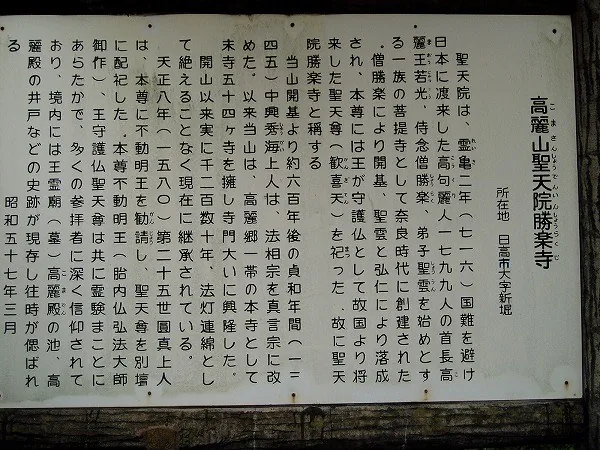 高麗山聖天院勝楽寺
こまさんしょうでんいんしょうらくじ
所在地　日高市大字新堀
聖天院は、霊亀二年（七一六）国難を避け
日本に渡来した高句麗人一七九九人の首長高
麗王若光、侍念僧勝楽、弟子聖雲を始めとす
る一族の菩提寺として奈良時代に創建された
。僧勝楽により開基、聖雲と弘仁により落成
され、本尊には王が守護仏として故国より将
来した聖天尊（歓喜天）を祀った、故に聖天
院勝楽寺と称する
当山開基より約六百年後の貞和年間（一三
四五）中興秀海上人は、法相宗を真言宗に改
めた。以来当山は、高麗郷一帯の本寺として
末寺五十四ヶ寺を擁し寺門大いに興隆した。
開山以来実に千二百数十年、法灯連綿とし
て絶えることなく現在に継承されている。
天正八年（一五八〇）第二十五世圓真上人
は、本尊に不動明王を勧請し、聖天尊を別壇
に配祀した。本尊不動明王（胎内仏弘法大師
御作）、王守護仏聖天尊は共に霊験まことに
あらたかで、多くの参拝者に深く信仰されて
おり、境内には王霊廟（墓）高麗殿の池、高
麗殿の井戸などの史跡が現存し往時が偲ばれ
る
昭和五十七年三月